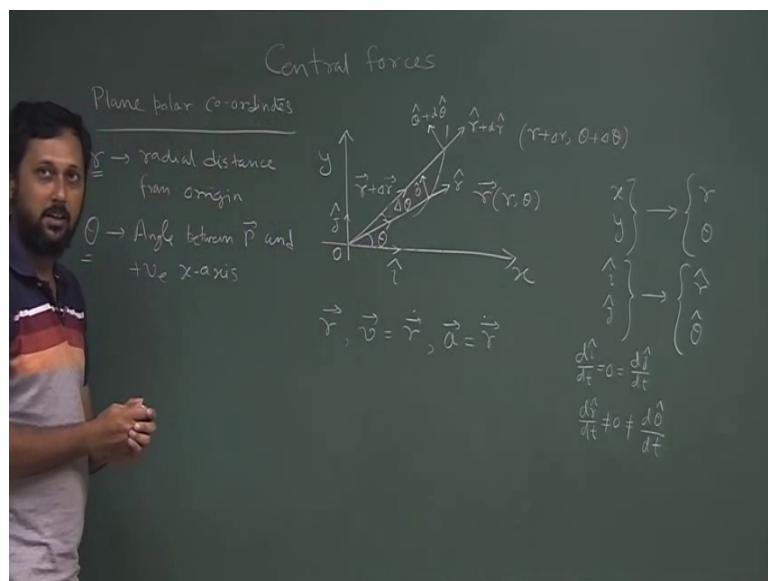 Central forces
Plane polar co-ordinates
r → radial distance
from origin
θ → Angle between r⃗ and
+ve x-axis
y
ĵ
O
î
x
θ
Δθ
r⃗+Δr⃗
θ̂
r̂
r⃗(r, θ)
θ̂+dθ̂
r̂+dr̂
(r+Δr, θ+Δθ)
r⃗, v⃗ = ṙ⃗, a⃗ = r̈⃗
x
y } → { r
θ
î
ĵ } → { r̂
θ̂
dî/dt = 0 = dĵ/dt
dr̂/dt ≠ 0 ≠ dθ̂/dt